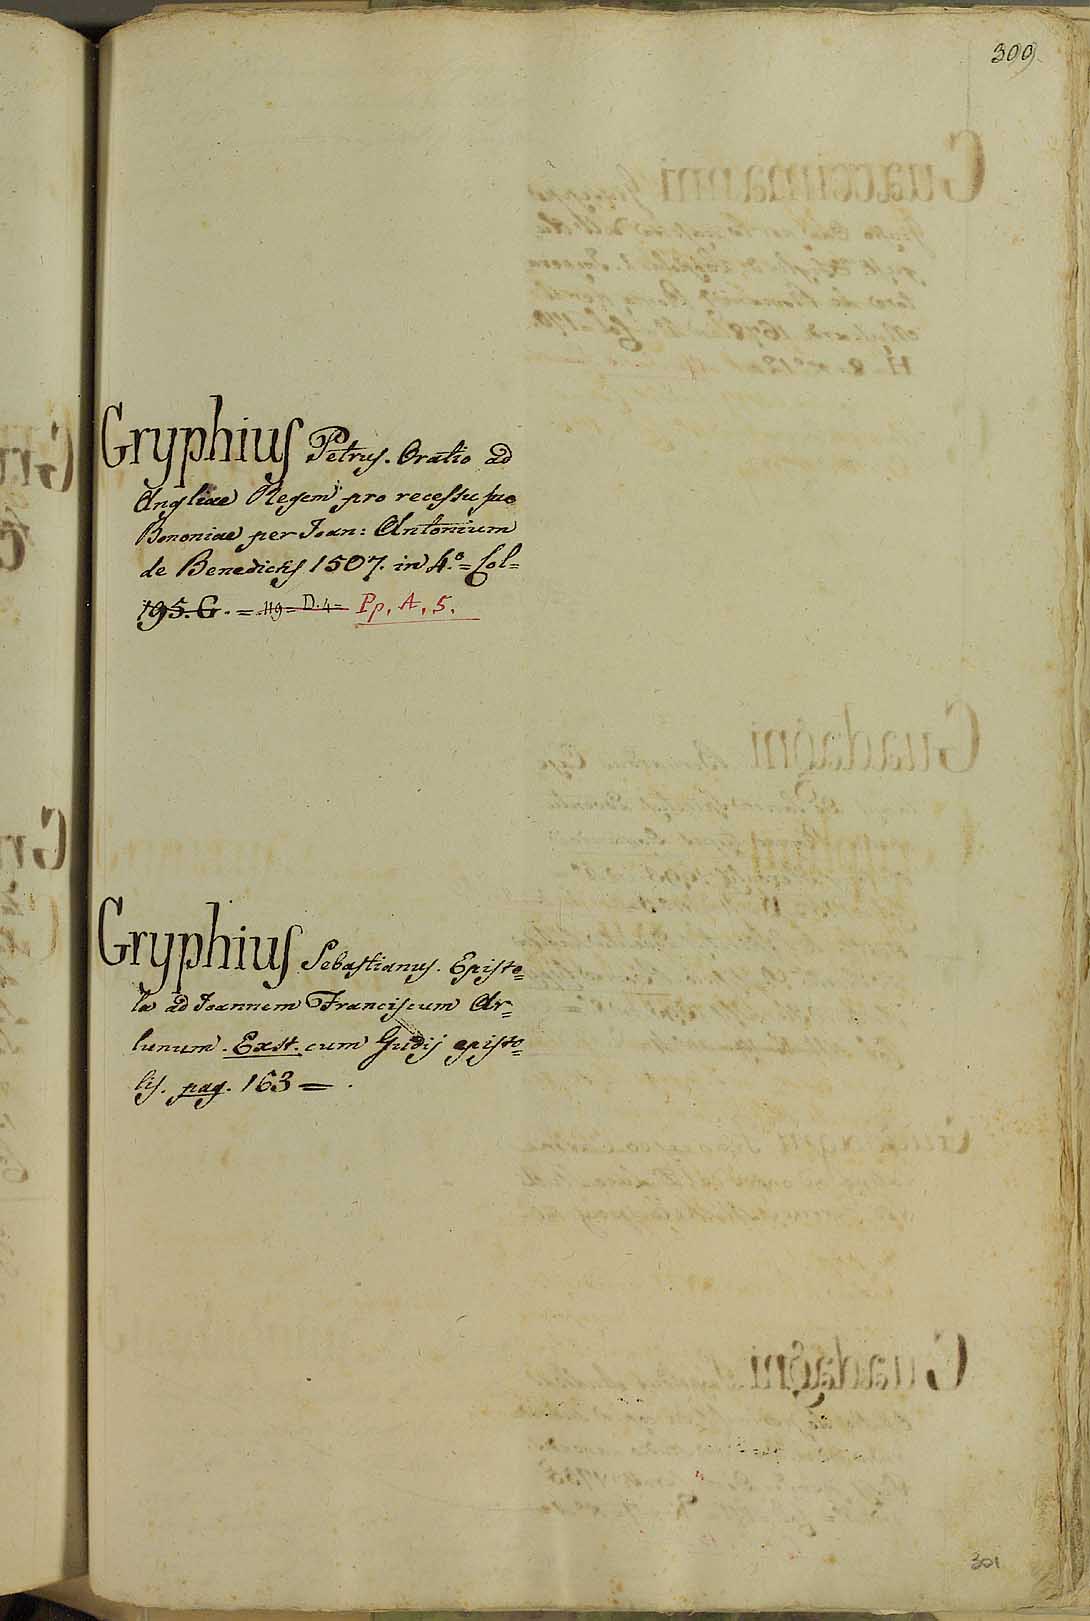 309
Gryphius Petrus. Oratio ad
Angliae Regem pro recessu suo
Bononiae per Ioan: Antonium
de Benedictis 1507. in 4.º = Col=
195. G. = 119 = D. 4 = Pp, A, 5.
Gryphius Sebastianus. Episto=
la ad Ioannem Franciscum Ar=
lunum. Exst. cum Gudij episto=
lis. pag. 163 = .
301